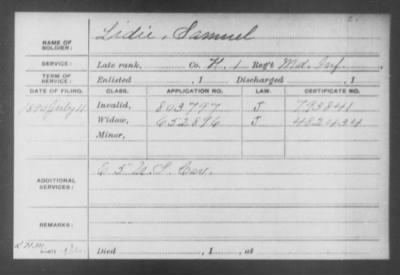 NAME OF SOLDIER: Lidie, Samuel
SERVICE: Late rank, Co. H. 1 Reg't Md. Inf.
TERM OF SERVICE: Enlisted , 1 Discharged , 1
DATE OF FILING. CLASS. APPLICATION NO. LAW. CERTIFICATE NO.
1890 July 11 Invalid, 803797 J 793841
Widow, 652896 J 482434
Minor,
ADDITIONAL SERVICES: E 5 U.S. Cav.
REMARKS:
Died , 1 , at